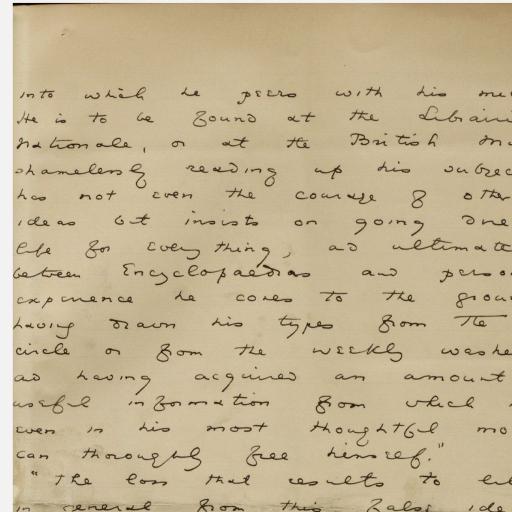 into which he peers with his
He is to be found at the Librairie
Nationale, or at the British
shamelessly reading up his subject
has not even the courage of other
ideas but insists on going
life for everything, and ultimately
between Encyclopaedias and
experience he comes to the
having drawn his types from the
circle or from the weekly
and having acquired an amount
useful information from which
even in his most thoughtful
can thoroughly free himself."
"The loss that results to
in general from this false